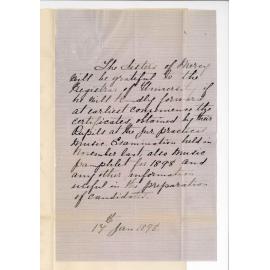 The Sisters of Mercy
will be grateful to the
Registrar of University if
he will kindly forward
at earliest convenience the
certificates, obtained by their
Pupils at the practical
Music Examination held in
November last, also Music
pamphlet for 1898 and
any other information
useful in the preparation
of candidates.
14th Jan 189